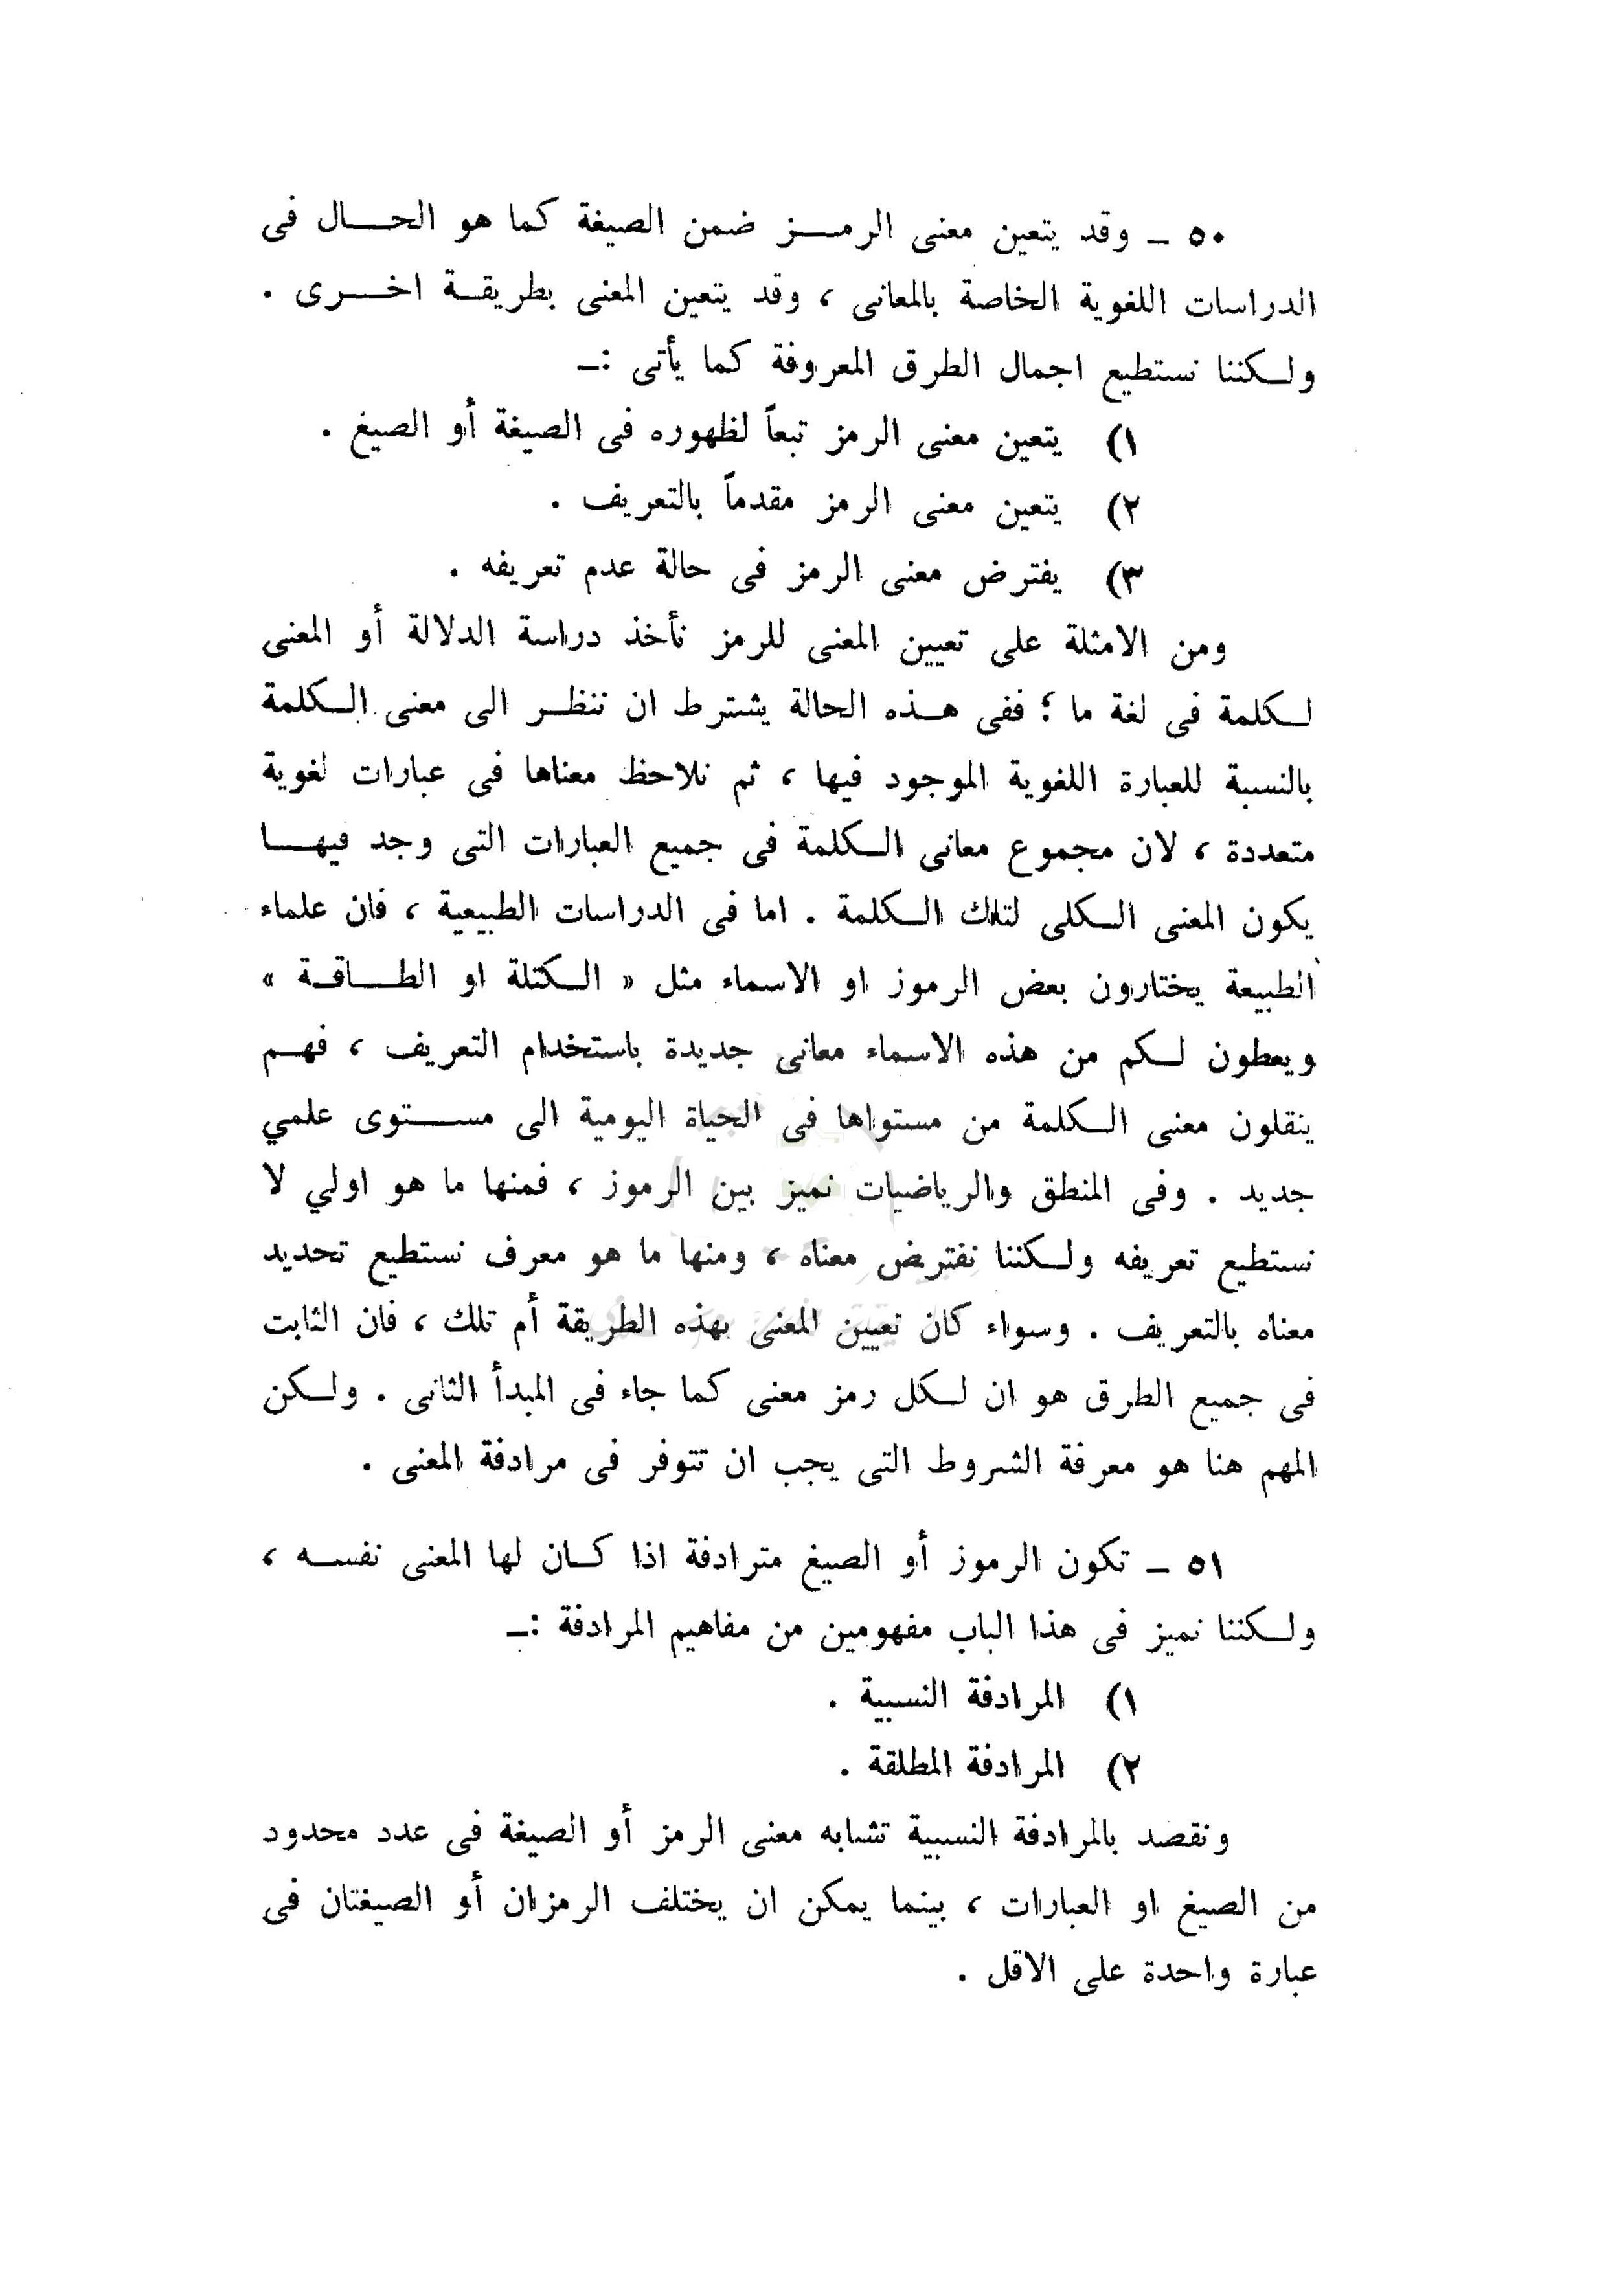 ٥٠ ـ وقد يتعين معنى الرمــز ضمن الصيغة كما هو الحــال فى
الدراسات اللغوية الخاصة بالمعانى ، وقد يتعين المعنى بطريقــة اخــرى .
ولـكننا نستطيع اجمال الطرق المعروفة كما يأتى :ـ
١) يتعين معنى الرمز تبعاً لظهوره فى الصيغة أو الصيغ .
٢) يتعين معنى الرمز مقدماً بالتعريف .
٣) يفترض معنى الرمز فى حالة عدم تعريفه .
ومن الامثلة على تعيين المعنى للرمز نأخذ دراسة الدلالة أو المعنى
لـكلمة فى لغة ما ؛ ففى هـذه الحالة يشترط ان ننظـر الى معنى الـكلمة
بالنسبة للعبارة اللغوية الموجود فيها ، ثم نلاحظ معناها فى عبارات لغوية
متعددة ، لان مجموع معانى الـكلمة فى جميع العبارات التى وجد فيهــا
يكون المعنى الـكلى لتلك الـكلمة . اما فى الدراسات الطبيعية ، فان علماء
الطبيعة يختارون بعض الرموز او الاسماء مثل « الـكتلة او الطــاقـة »
ويعطون لـكم من هذه الاسماء معانى جديدة باستخدام التعريف ، فهـم
ينقلون معنى الـكلمة من مستواها فى الحياة اليومية الى مســتوى علمي
جديد . وفى المنطق والرياضيات نميز بين الرموز ، فمنها ما هو اولي لا
نستطيع تعريفه ولـكننا نفترض معناه ، ومنها ما هو معرف نستطيع تحديد
معناه بالتعريف . وسواء كان تعيين المعنى بهذه الطريقة أم تلك ، فان الثابت
فى جميع الطرق هو ان لـكل رمز معنى كما جاء فى المبدأ الثانى . ولـكن
المهم هنا هو معرفة الشروط التى يجب ان تتوفر فى مرادفة المعنى .
٥١ ـ تكون الرموز أو الصيغ مترادفة اذا كـان لها المعنى نفسـه ،
ولـكننا نميز فى هذا الباب مفهومين من مفاهيم المرادفة :ـ
١) المرادفة النسبية .
٢) المرادفة المطلقة .
ونقصد بالمرادفة النسبية تشابه معنى الرمز أو الصيغة فى عدد محدود
من الصيغ او العبارات ، بينما يمكن ان يختلف الرمزان أو الصيغتان فى
عبارة واحدة على الاقل .